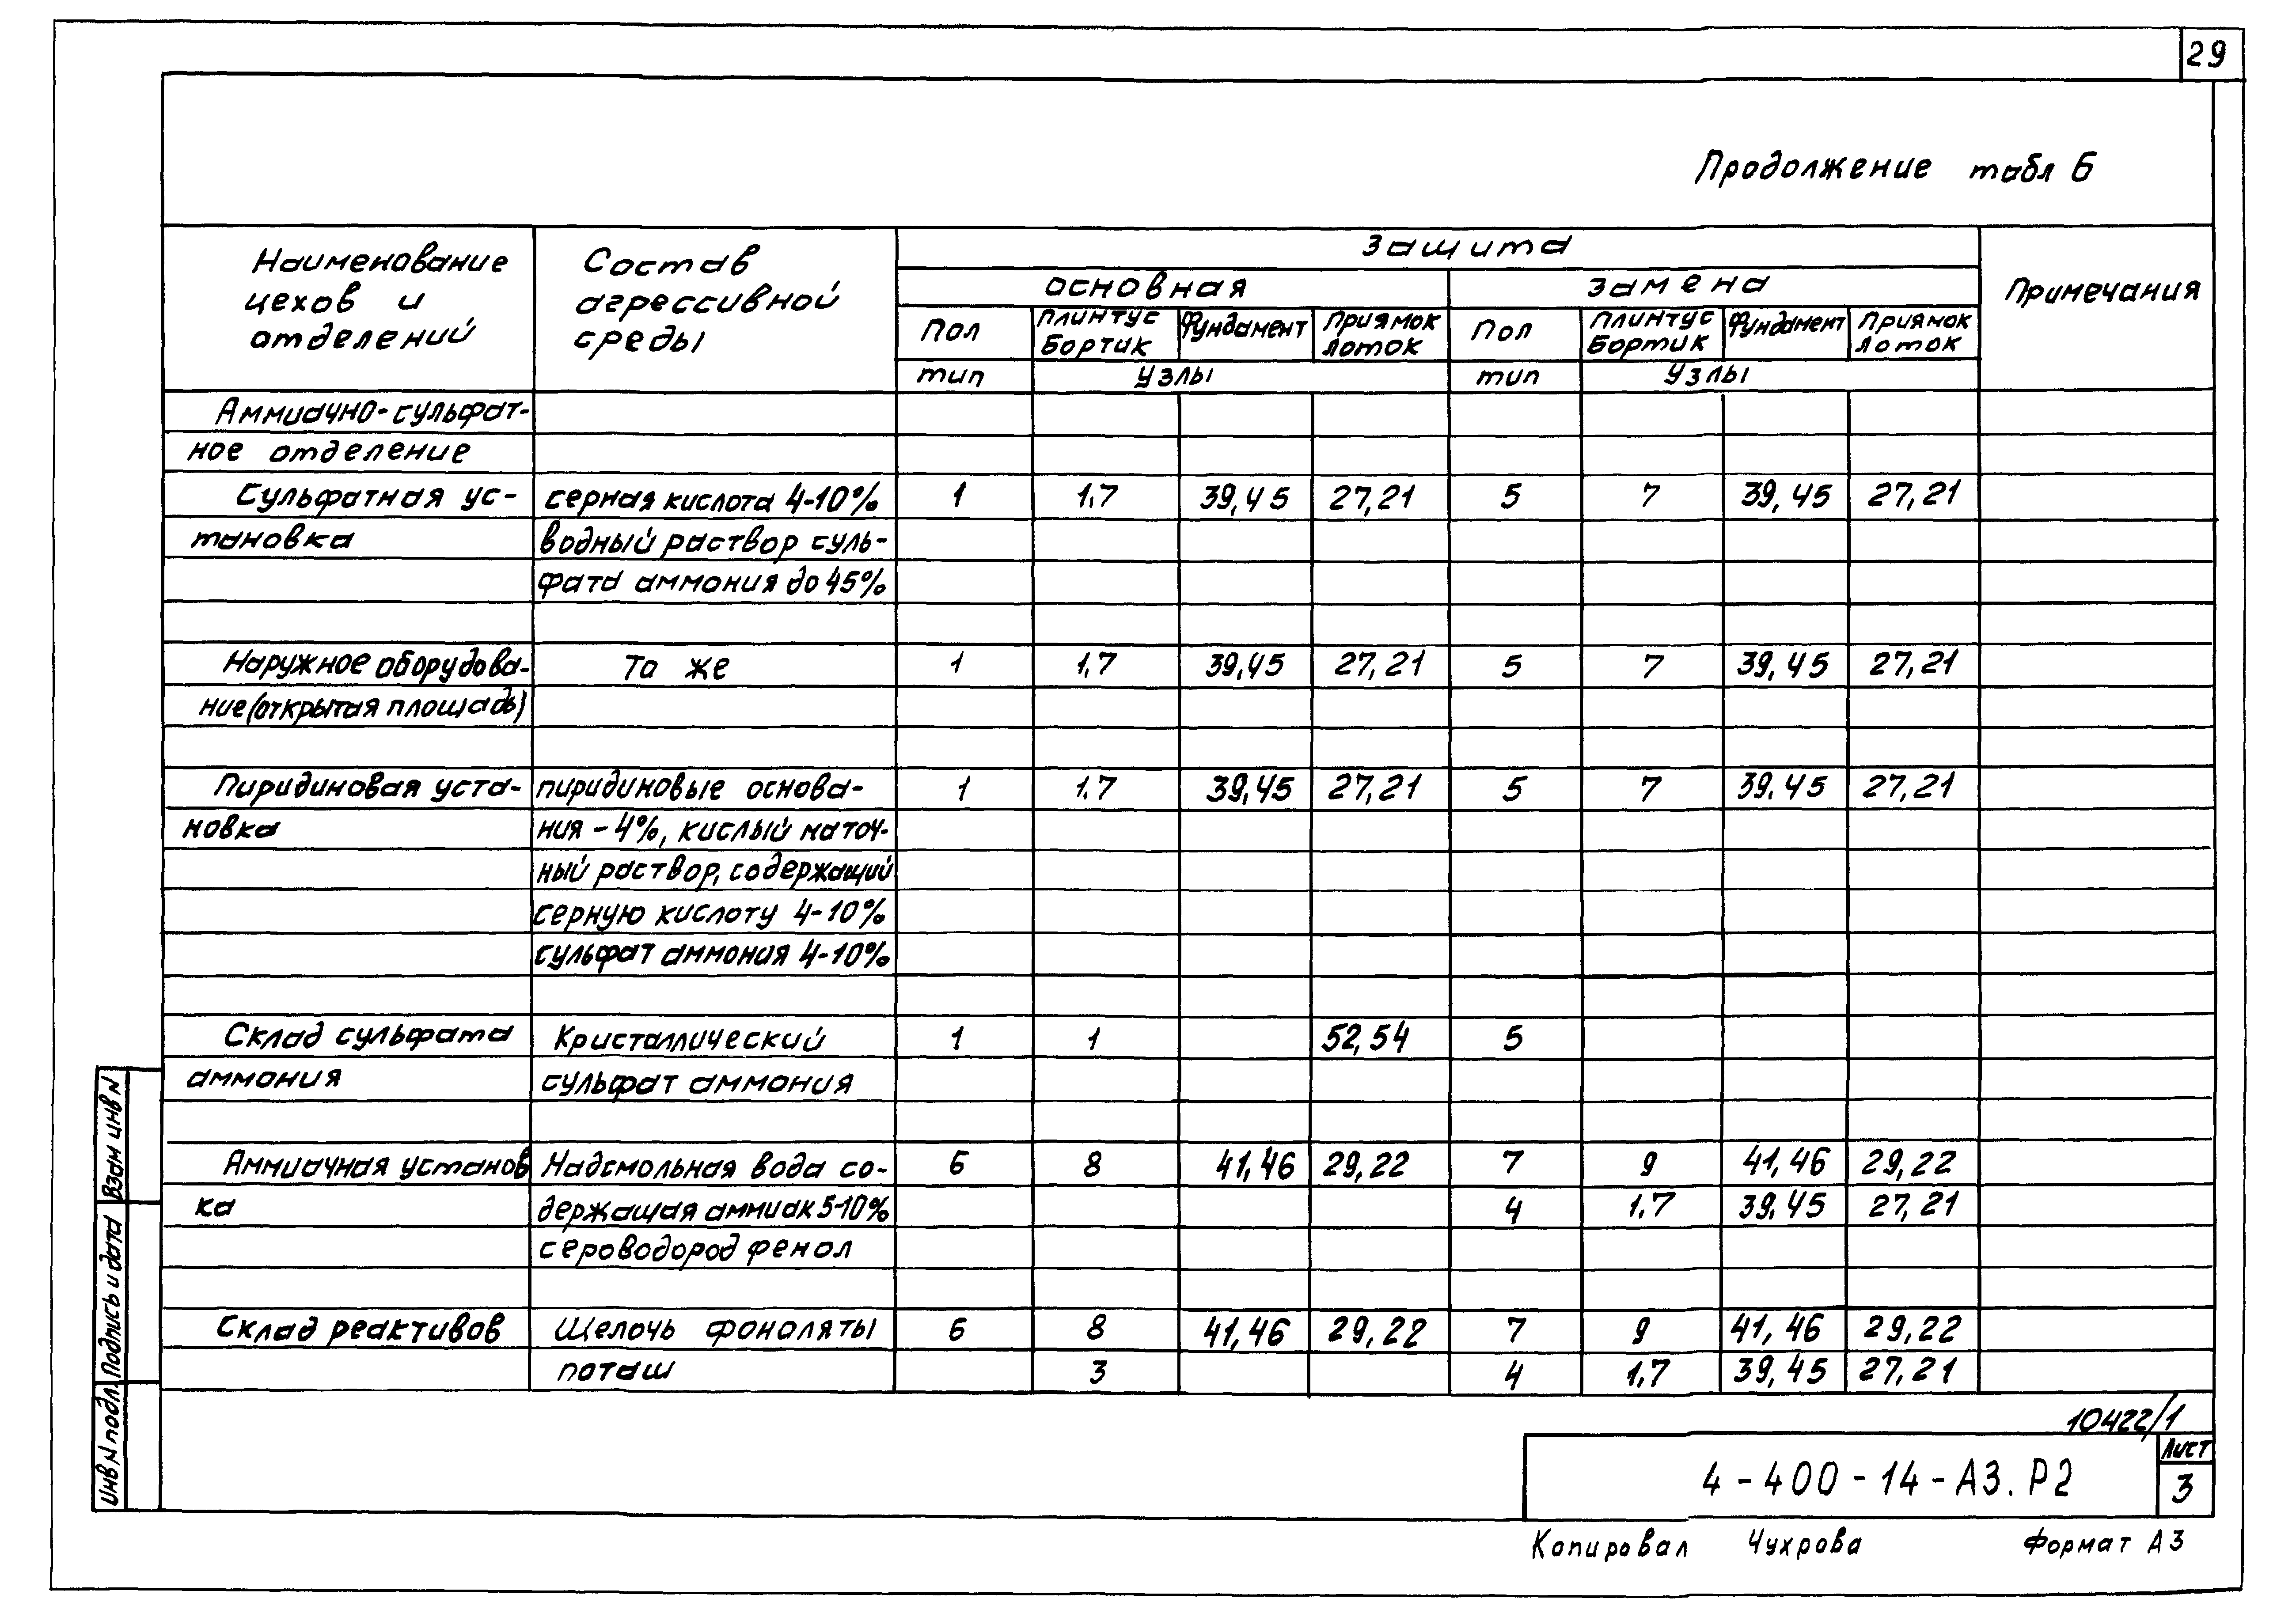 29
Продолжение табл 6
Наименование цехов и отделений
Состав агрессивной среды
Защита
основная
замена
Примечания
Пол
Плинтус Бортик
Фундамент
Приямок лоток
Пол
Плинтус Бортик
Фундамент
Приямок лоток
тип
Узлы
тип
Узлы
Аммиачно-сульфат-
ное отделение
Сульфатная ус- серная кислота 4-10% 1 1.7 39,45 27,21 5 7 39,45 27,21
тановка водный раствор суль-
фата аммония до 45%
Наружное оборудова- То же 1 1.7 39,45 27,21 5 7 39,45 27,21
ние (открытая площадь)
Пиридиновая уста- пиридиновые основа- 1 1.7 39,45 27,21 5 7 39.45 27,21
новка ния - 4%, кислый маточ-
ный раствор, содержащий
серную кислоту 4-10%
сульфат аммония 4-10%
Склад сульфата Кристаллический 1 1 52,54 5
аммония сульфат аммония
Аммиачная установ Надсмольная вода со- 6 8 41,46 29,22 7 9 41,46 29,22
ка держащая аммиак 5-10% 4 1.7 39.45 27,21
сероводород фенол
Склад реактивов Щелочь фоноляты 6 8 41,46 29,22 7 9 41,46 29,22
поташ 3 4 1.7 39,45 27,21
Взам инв N
Подпись и дата
Инв N подл.
10422/1
4-400-14-А3.Р2
Лист
3
Копировал Чухрова Формат А3